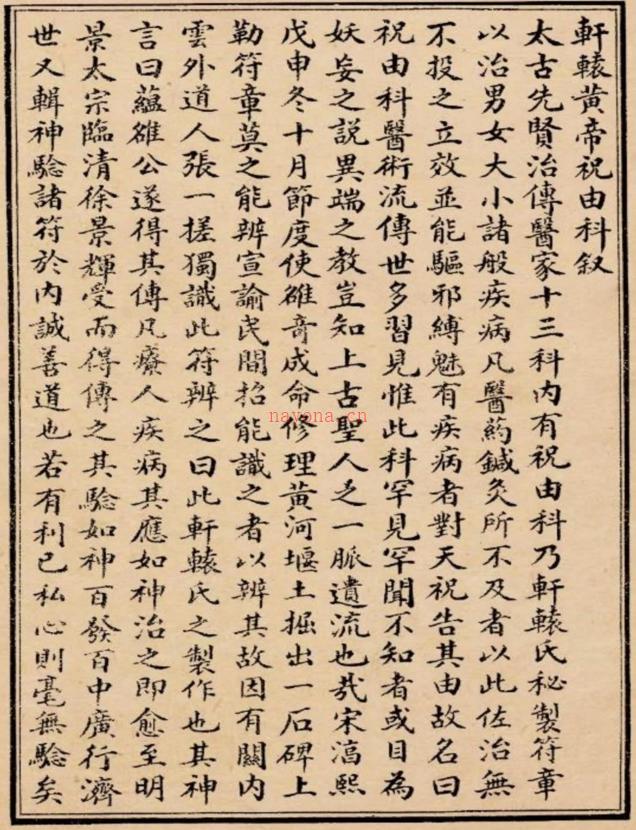 軒轅黃帝祝由科叙
太古先賢治傳醫家十三科内有祝由科乃軒轅氏秘製符章
以治男女大小諸般疾病凡醫药鍼灸所不及者以此佐治無
不投之立效並能驅邪縛魅有疾病者對天祝告其由故名曰
祝由科醫術流傳世多習見惟此科罕見罕聞不知者或目為
妖妄之說異端之教豈知上古聖人之一脈遺流也哉宋淳熙
戊申冬十月節度使雒竒成命修理黃河堰土掘出一石碑上
勒符章莫之能辨宣諭民間招能識之者以辨其故因有關内
雲外道人張一搓獨識此符辨之曰此軒轅氏之製作也其神
言曰蘊雒公遂得其傳凡療人疾病其應如神治之即愈至明
景太宗臨清徐景輝受而得傳之其驗如神百發百中廣行濟
世又輯神驗諸符於内誠善道也若有利己私心則毫無驗矣
nayona.cn